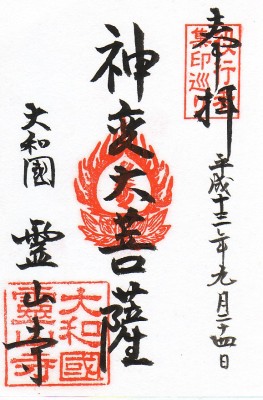 奉拝
平成十三年九月二十四日
神変大菩薩
大和國
霊山寺
大和國
靈山寺